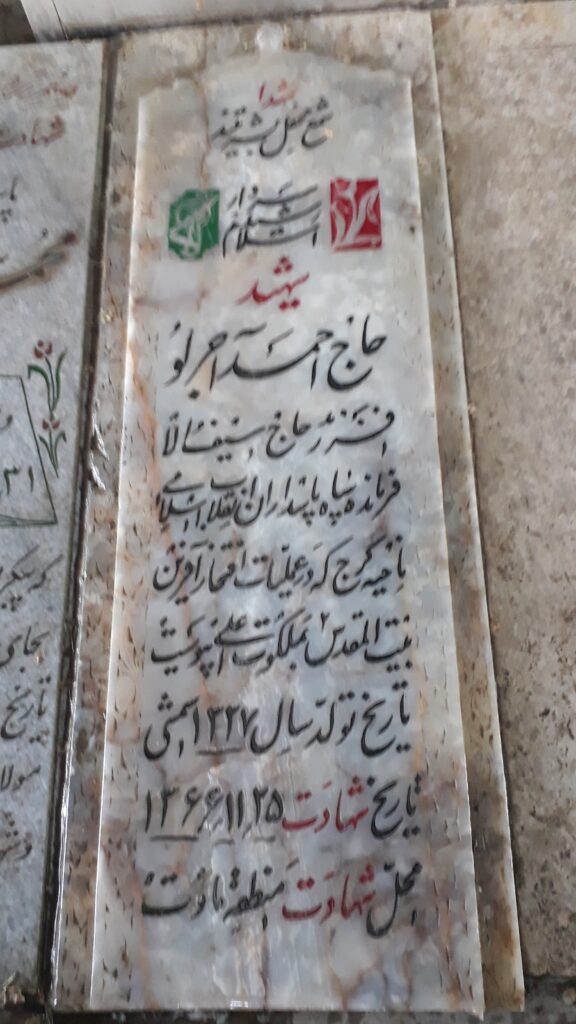 شهدا
شمع محفل بشریتند
سردار
رشید
اسلام
شهید
حاج احمد آجرلو
فرزند حاج سیف الا
فرمانده سپاه پاسداران انقلاب اسلامی
ناحیه کرج که در عملیات افتخار آفرین
بیت المقدس ۲ بملکوت اعلی پیوست
تاریخ تولد سال ۱۳۲۷ شمسی
تاریخ شهادت ۲۵ ر ۱۱ ر ۱۳۶۶
محل شهادت منطقه ماووت
بجای
تاریخ